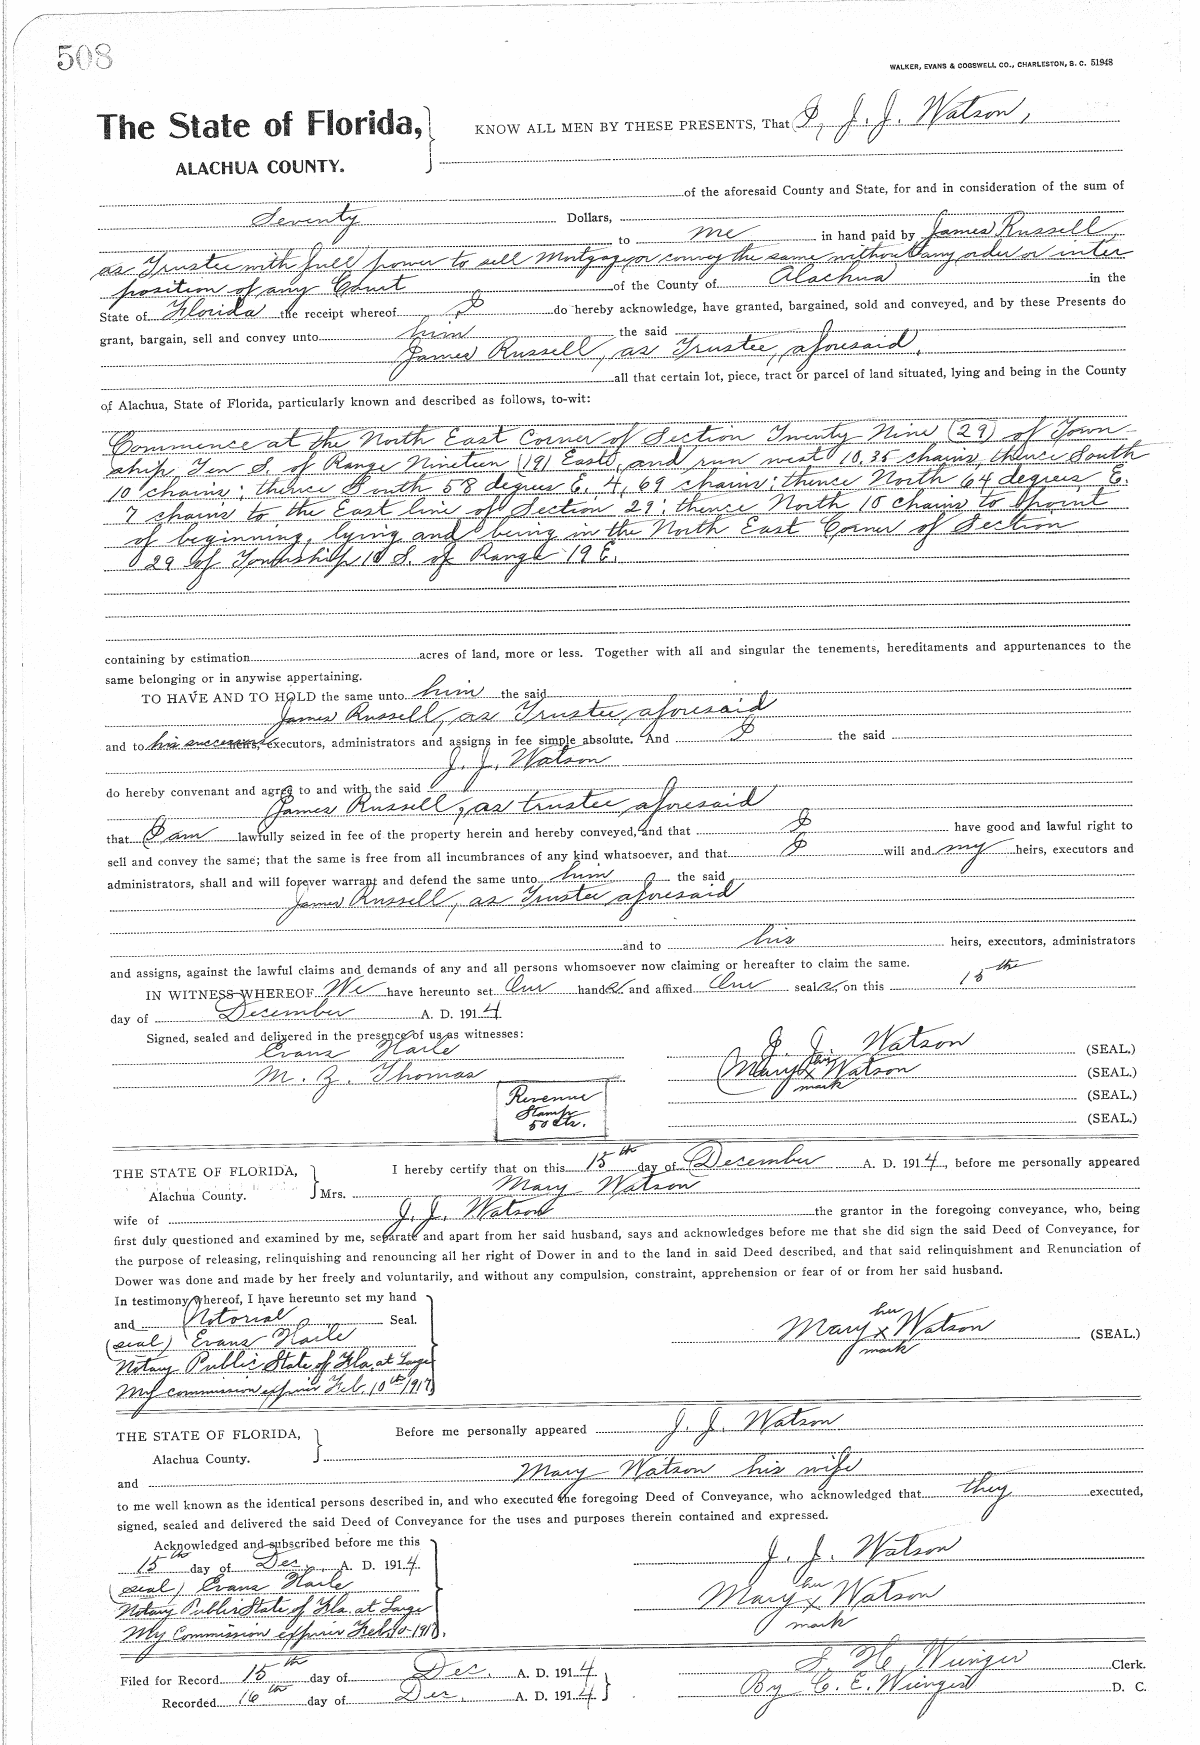 508
WALKER, EVANS & COGSWELL CO., CHARLESTON, S. C. 51948
The State of Florida, KNOW ALL MEN BY THESE PRESENTS, That I, J. J. Watson,
ALACHUA COUNTY.
of the aforesaid County and State, for and in consideration of the sum of
Seventy Dollars,
to me in hand paid by James Russell,
as Trustee with full power to sell Mortgage, or convey the same without any order or inter
position of any Court of the County of Alachua in the
State of Florida the receipt whereof I do hereby acknowledge, have granted, bargained, sold and conveyed, and by these Presents do
grant, bargain, sell and convey unto him the said
James Russell, as Trustee, aforesaid,
all that certain lot, piece, tract or parcel of land situated, lying and being in the County
of Alachua, State of Florida, particularly known and described as follows, to-wit:
Commence at the North East Corner of Section Twenty Nine (29) of Town
ship Ten S. of Range Nineteen (19) East, and run west 10.35 chains, thence South
10 chains; thence South 58 degrees E. 4,69 chains; thence North 64 degrees E.
7 chains to the East line of Section 29; thence North 10 chains to point
of beginning, lying and being in the North East Corner of Section
29 of Township 10 S. of Range 19 E.
containing by estimation acres of land, more or less. Together with all and singular the tenements, hereditaments and appurtenances to the
same belonging or in anywise appertaining.
TO HAVE AND TO HOLD the same unto him the said
James Russell, as Trustee aforesaid
and to his successors heirs, executors, administrators and assigns in fee simple absolute. And I the said
J. J. Watson
do hereby convenant and agree to and with the said
James Russell, as trustee aforesaid
that I am lawfully seized in fee of the property herein and hereby conveyed, and that I have good and lawful right to
sell and convey the same; that the same is free from all incumbrances of any kind whatsoever, and that I will and my heirs, executors and
administrators, shall and will forever warrant and defend the same unto him the said
James Russell, as Trustee aforesaid
and to his heirs, executors, administrators
and assigns, against the lawful claims and demands of any and all persons whomsoever now claiming or hereafter to claim the same.
IN WITNESS WHEREOF We have hereunto set Our hands and affixed Our seals, on this 15th
day of December A. D. 1914.
Signed, sealed and delivered in the presence of us as witnesses:
Evans Haile J. J. Watson (SEAL.)
M. Z. Thomas Mary her x mark Watson (SEAL.)
(SEAL.)
(SEAL.)
Revenue
Stamp
50 cts.
THE STATE OF FLORIDA, I hereby certify that on this 15th day of December A. D. 1914, before me personally appeared
Alachua County. Mrs. Mary Watson
wife of J. J. Watson the grantor in the foregoing conveyance, who, being
first duly questioned and examined by me, separate and apart from her said husband, says and acknowledges before me that she did sign the said Deed of Conveyance, for
the purpose of releasing, relinquishing and renouncing all her right of Dower in and to the land in said Deed described, and that said relinquishment and Renunciation of
Dower was done and made by her freely and voluntarily, and without any compulsion, constraint, apprehension or fear of or from her said husband.
In testimony whereof, I have hereunto set my hand
and Notorial Seal.
(seal) Evans Haile Mary her x mark Watson (SEAL.)
Notary Public State of Fla. at Large
My commission expires Feb. 10th 1917.
THE STATE OF FLORIDA, Before me personally appeared J. J. Watson
Alachua County.
and Mary Watson his wife
to me well known as the identical persons described in, and who executed the foregoing Deed of Conveyance, who acknowledged that they executed,
signed, sealed and delivered the said Deed of Conveyance for the uses and purposes therein contained and expressed.
Acknowledged and subscribed before me this
15th day of Dec. A. D. 1914. J. J. Watson
(seal) Evans Haile Mary her x mark Watson
Notary Public State of Fla. at Large
My Commission expires Feb. 10-1917.
Filed for Record 15th day of Dec. A. D. 1914 S H Wienges Clerk.
Recorded 16th day of Dec. A. D. 1914 By C. E. Wienges D. C.